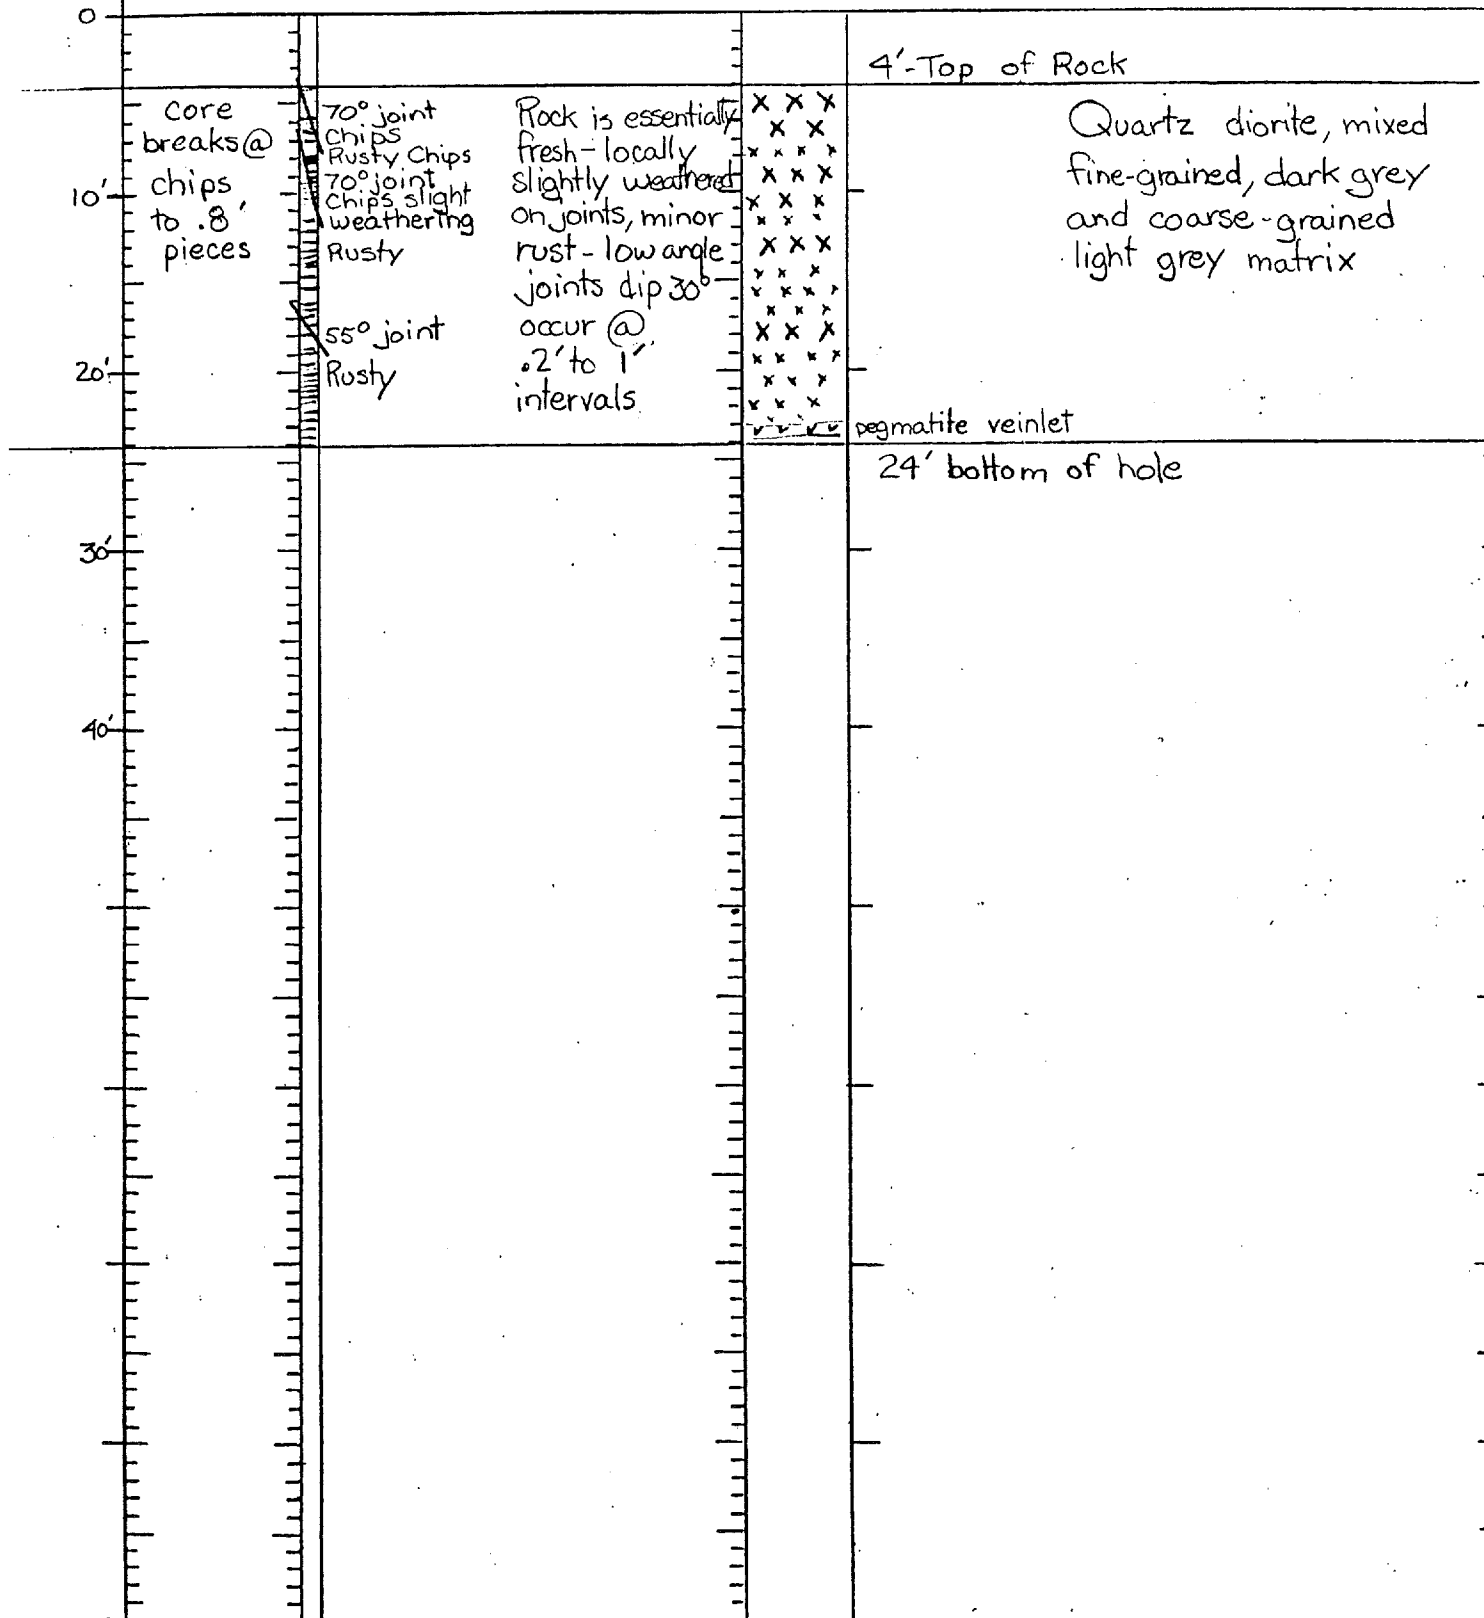 0
10'
20'
30'
40'
core
breaks@
chips
to .8'
pieces
70° joint
Chips
Rusty Chips
70° joint
Chips slight
weathering
Rusty
55° joint
Rusty
Rock is essentially
fresh-locally
slightly weathered
on joints, minor
rust-low angle
joints dip 30°
occur @
.2' to 1'
intervals
4'-Top of Rock
Quartz diorite, mixed
fine-grained, dark grey
and coarse-grained
light grey matrix
pegmatite veinlet
24' bottom of hole